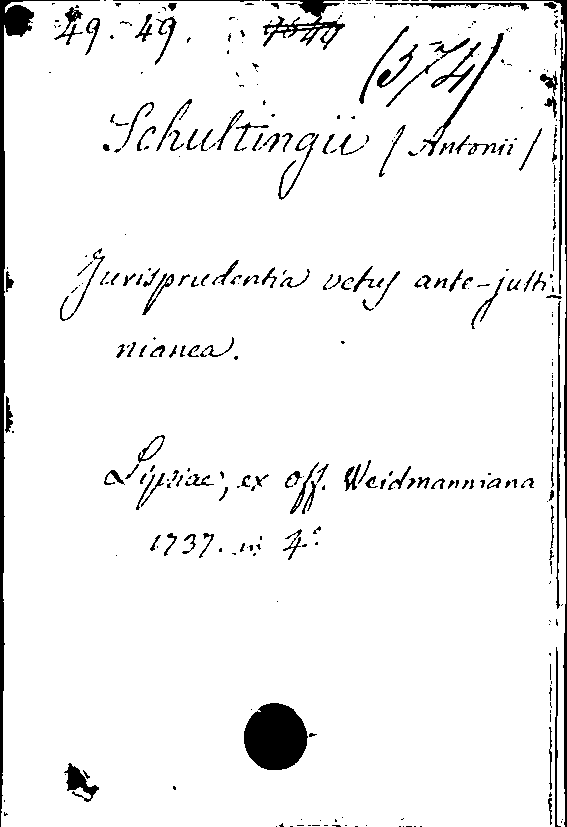 49. 49.
(374)
Schultingii (Antonii)
Jurisprudentia vetus ante-justi-
nianea.
Lipsiae, ex off. Weidmanniana
1737. in 4°